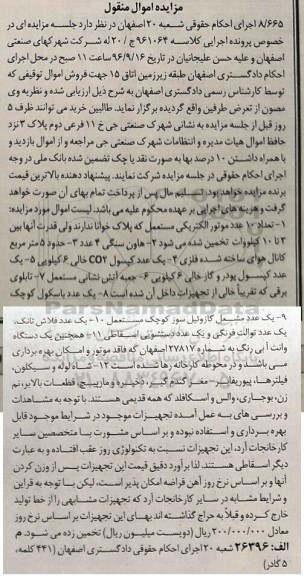 مزایده اموال منقول
۸/۶۶۵ اجرای احکام حقوقی شعبه ۲۰ اصفهان در نظر دارد جلسه مزایده ای در
خصوص پرونده اجرایی کلاسه ۹۶۱۰۶۴ ج / ۲۰ له شرکت شهرکهای صنعتی
اصفهان و علیه حسن علیجانیان در تاریخ ۹۶/۹/۱۶ ساعت ۱۱ صبح در محل اجرای
احکام دادگستری اصفهان طبقه زیرزمین اتاق ۱۵ جهت فروش اموال توقیفی که
توسط کارشناس رسمی دادگستری اصفهان به شرح ذیل ارزیابی شده و نظریه وی
مصون از تعرض طرفین واقع گردیده برگزار نماید. طالبین خرید می توانند ظرف ۵
روز قبل از جلسه مزایده به نشانی شهرک صنعتی جی خ ۱۱ فرعی دوم پلاک ۳ نزد
حافظ اموال هیات مدیره و انتظامات شهرک صنعتی جی مراجعه و از اموال بازدید و
با همراه داشتن ۱۰ درصد بها به صورت نقد یا چک تضمین شده بانک ملی در وجه
اجرای احکام حقوقی در جلسه مزایده شرکت نمایند. پیشنهاد دهنده بالاترین قیمت
برنده مزایده خواهد بود. تسلیم مال پس از پرداخت تمام بهای آن صورت خواهد
گرفت و هزینه های اجرایی بر عهده محکوم علیه می باشد. لیست اموال مورد مزایده:
۱- تعداد ۱۰ عدد موتور الکتریکی مستعمل که پلاک خوانا ندارند ولی قدرت آنها بین
۳ تا ۱۰ کیلووات تخمین شده می شود ۲- هاون سنگی ۴ عدد ۳- حدود ۵ متر مربع
کانال هوای ساخته شده فلزی ۴- یک عدد کپسول CO۲ خالی ۶ کیلویی ۵- یک
عدد کپسول پودر و گاز خالی ۶ کیلویی ۶- جعبه آتش نشانی مستعمل ۷- تابلوی
برقی که تقریباً خالی از تجهیزات داخل آن شده است ۸- یک عدد باسکول کوچک
۹- یک عدد مشعل گازوئیل سوز کوچک مستعمل ۱۰- یک عدد فلاش تانک،
یک عدد توالت فرنگی و یک عدد دستشویی اسقاطی ۱۱- همچنین یک دستگاه
وانت آبی رنگ به شماره ۲۷۸۱۷ اصفهان که فاقد موتور و امکان بهره برداری
می باشد و در محوطه کارخانه رها شده است ۱۲- شاه لوله و سیکلون،
فیلترها، پیوریفایر، مغز گندم گیر، ذخیره و مارپیچ، قطعات بالابر، نم
زن، بوجاری، والس و اسکافلد که همه قدیمی هستند. با توجه به مشاهدات
و بررسی های به عمل آمده تجهیزات موجود در شرایط موجود قابل
بهره برداری و استفاده نبوده و بر اساس مشورت با متخصصین سایر
کارخانجات آرد، این تجهیزات نسبت به تکنولوژی روز عقب افتاده و به عبارت
دیگر اسقاطی هستند. لذا برآورد دقیق قیمت این تجهیزات پس از وزن کردن
آنها و بر اساس نرخ روز آهن قراضه امکان پذیر است، لیکن بنا توجه به قراین
و شرایط مشابه در سایر کارخانجات آرد که تجهیزات مشابهی را از خط تولید
خارج کرده و قبلاً به حراج گذاشته اند بهای این تجهیزات بر اساس نرخ روز
معادل ۲۰۰/۰۰۰/۰۰۰ ریال (دویست میلیون ریال) تخمین زده می شود. م
الف: ۲۶۳۹۶ شعبه ۲۰ اجرای احکام حقوقی دادگستری اصفهان (۴۴۱ کلمه،
۵ کادر)